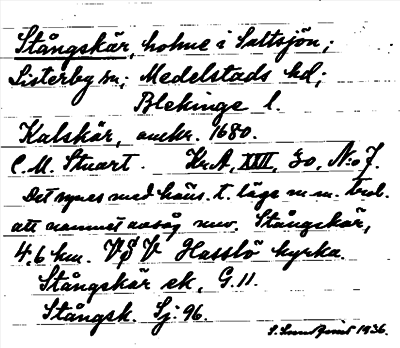 Stångskär, holme i Saltsjön;
Listerby sn; Medelstads hd;
Blekinge l.
Kalskär, omkr. 1680.
C. M. Stuart. Kr.A, XXII, 30, N:o 7.
Det synes med häns. t. läge m. m. trol.
att namnet avsåg nuv. Stångskär,
4,6 km. VSV Hasslö kyrka.
Stångskär ek, G. 11.
Stångsk. Sj. 96.
1936.